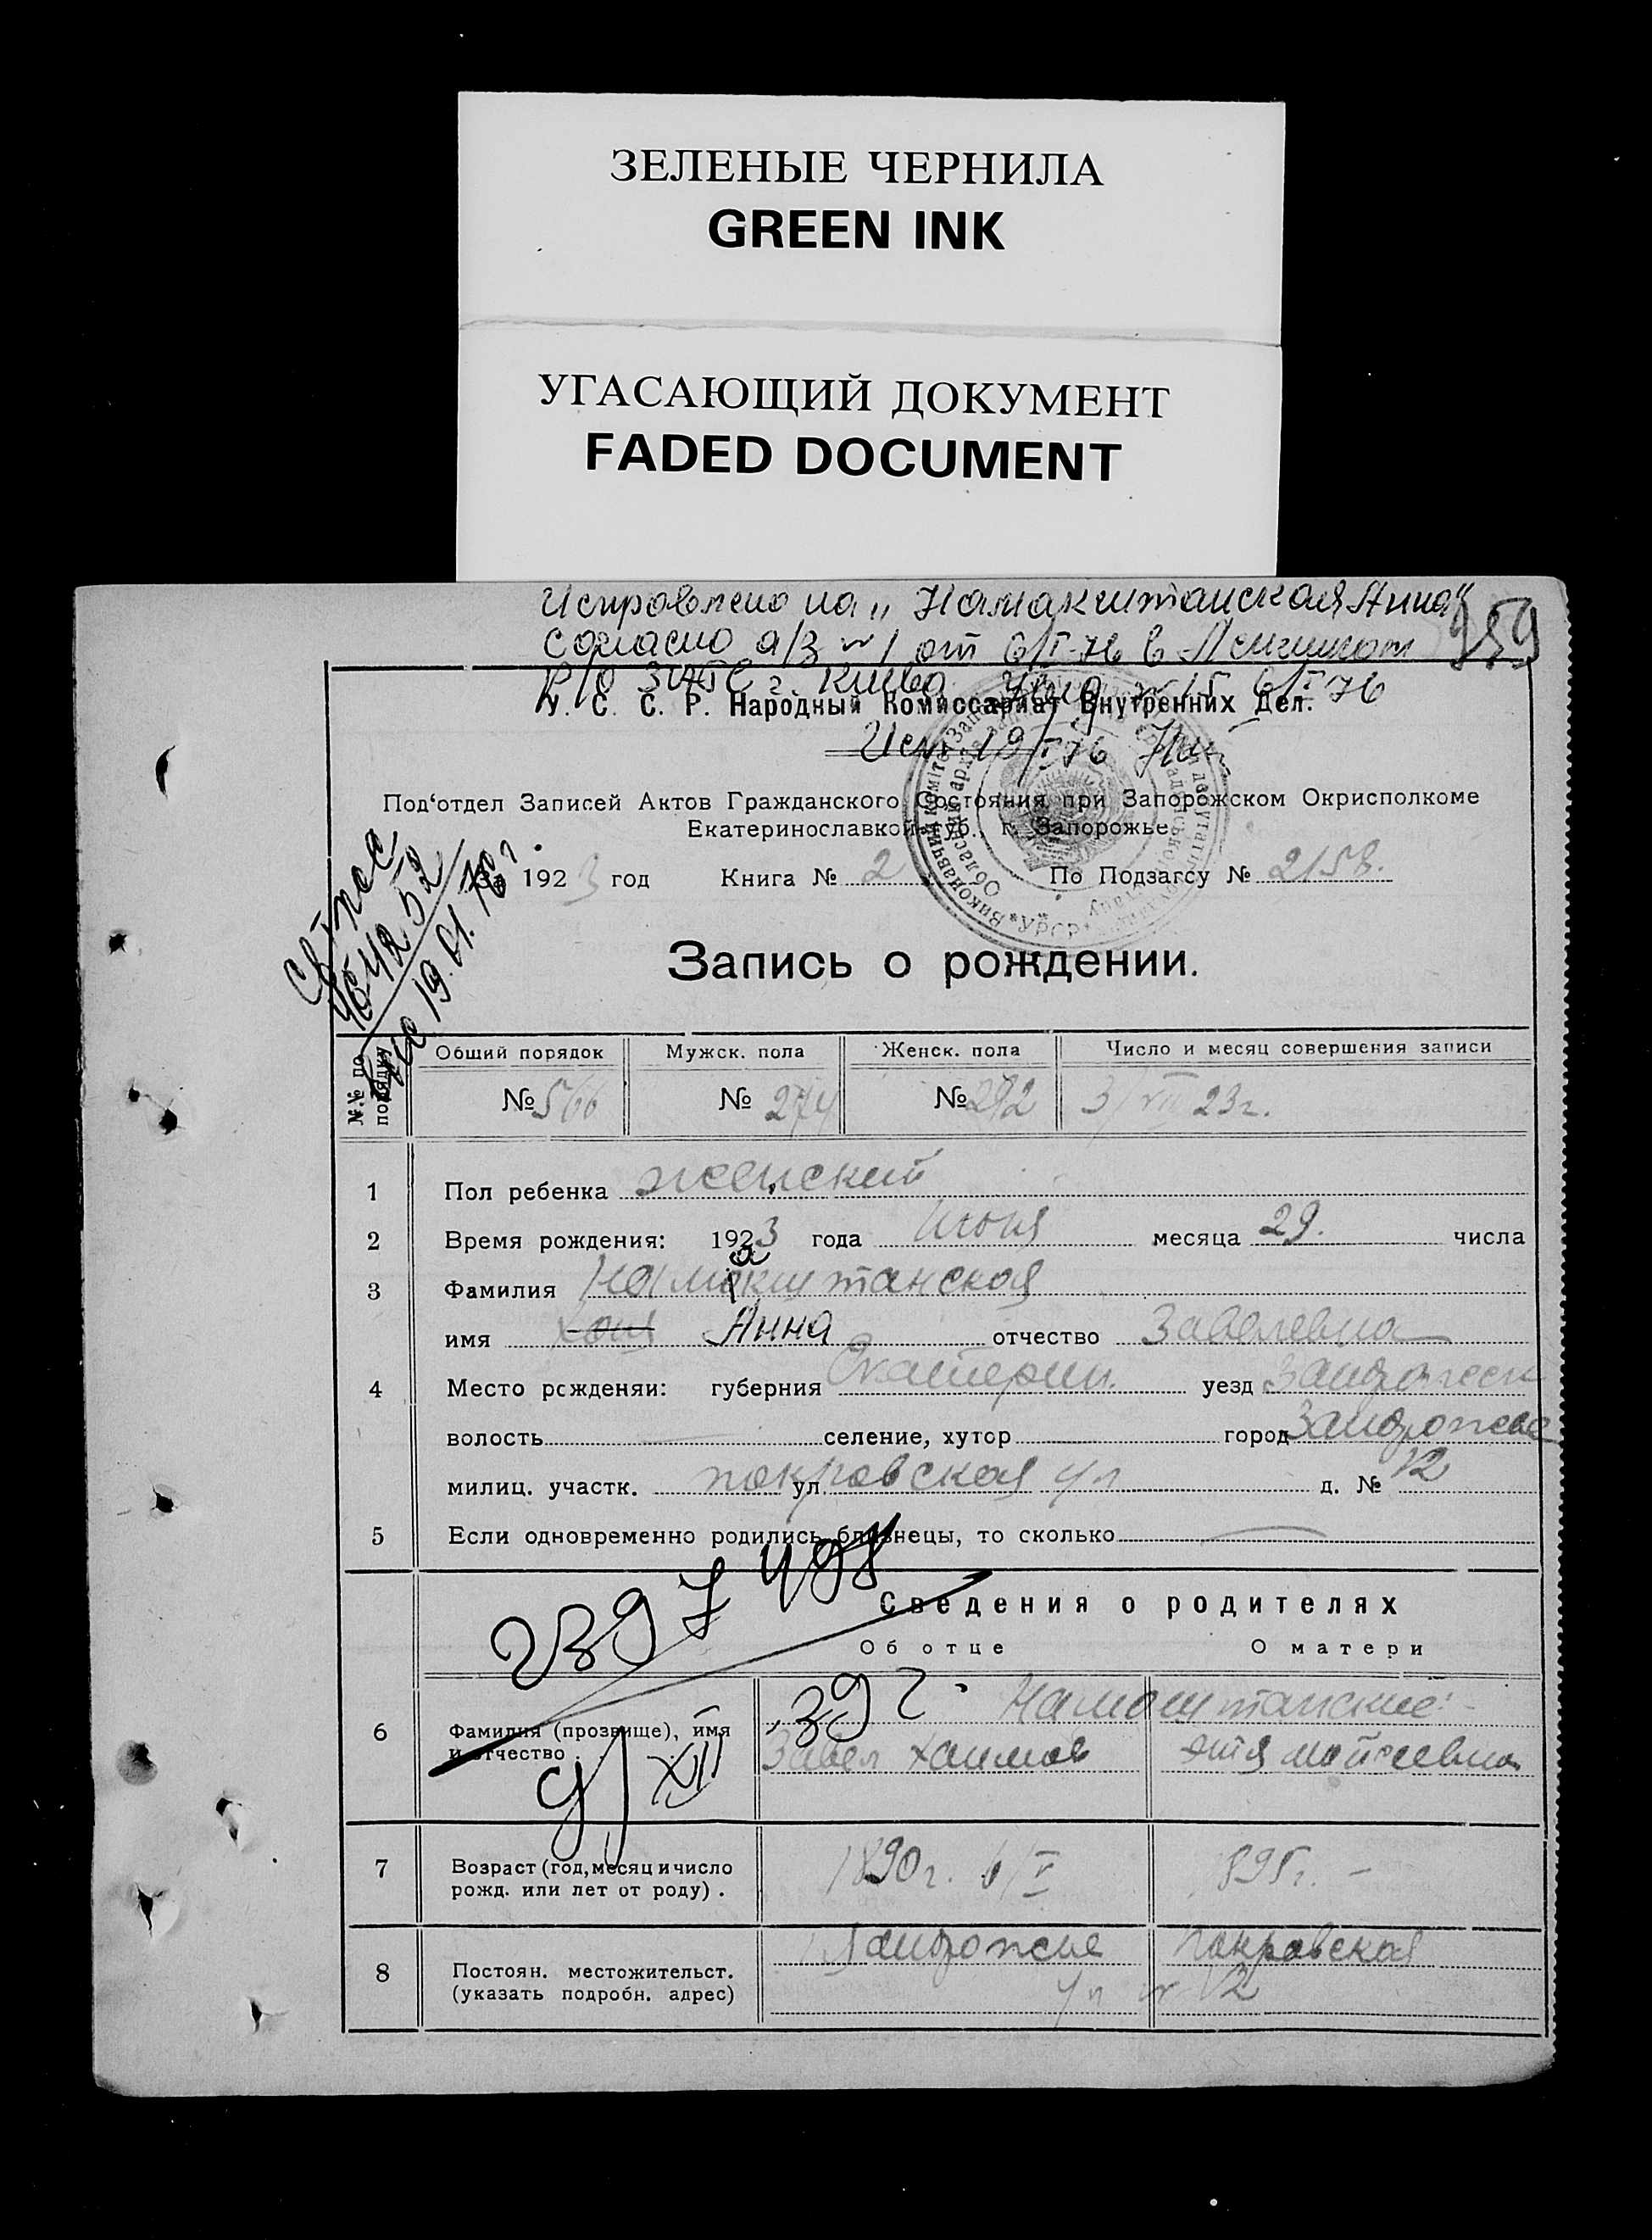 ЗЕЛЕНЫЕ ЧЕРНИЛА
GREEN INK
УГАСАЮЩИЙ ДОКУМЕНТ
FADED DOCUMENT
Исправлено на „Намакштанская Анна"
согласно а/з № 1 от 6/I-76 в Ленинском
Р/О ЗАГС г. Киева. 6/I 76
359
У. С. С. Р. Народный Комиссариат Внутренних Дел.
19/I 76
Под'отдел Записей Актов Гражданского Состояния при Запорожском Окрисполкоме
Екатеринославкой губ., г. Запорожье.
За 1923 год Книга № 2 По Подзагсу № 2158.
19.01.76г.
Запись о рождении.
№№ по порядку
Общий порядок Мужск. пола Женск. пола Число и месяц совершения записи
№ 566 № 274 № 292 3/VII 23г.
1 Пол ребенка женский
2 Время рождения: 1923 года Июня месяца 29. числа
3 Фамилия Намакштанская
имя Хоня Анна отчество Завелевна
4 Место рсжденяи: губерния Екатерин. уезд Запорожск
волость селение, хутор город Запорожье
милиц. участк. ул покровская ул д. № 12
5 Если одновременно родились близнецы, то сколько
Сведения о родителях
Об отце О матери
39 г.
6 Фамилия (прозвище), имя и отчество Намокштанские
Завел Хаимов Мойсеевна
9/XII
7 Возраст (год, месяц и число рожд. или лет от роду). 1890г. 6/V 895г. –
8 Постоян. местожительст. (указать подробн. адрес) Запорожье Покровская
ул № 12